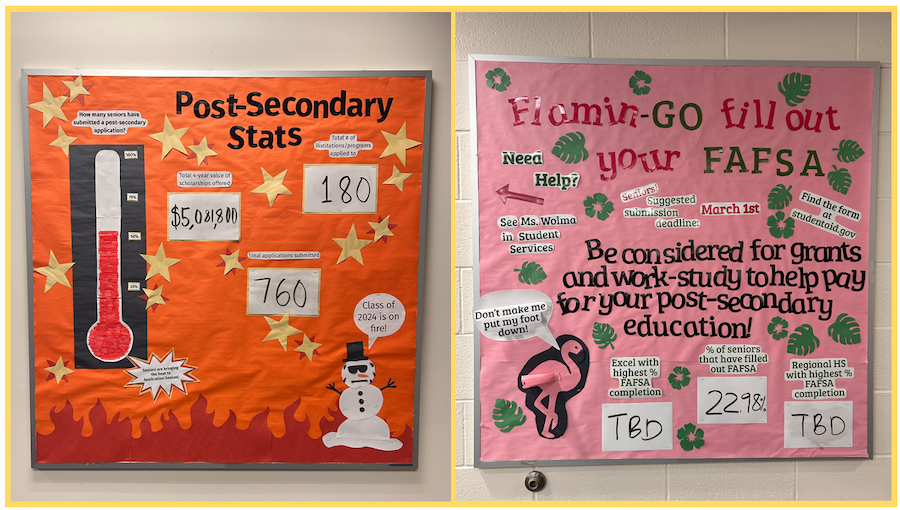 Post-Secondary
Stats
How many seniors have
submitted a post-secondary
application?
100%
75%
50%
25%
Total 4-year value of
scholarships offered
$5,081,800
Total # of
institutions/programs
applied to
180
Total applications submitted
760
Class of
2024 is on
fire!
Seniors are bringing
the heat to
Application Season!
Flamin-GO fill out
your FAFSA
Need
Help?
See Ms. Wolma
in Student
Services
Seniors!
Suggested
submission
deadline:
March 1st
Find the form
at
studentaid.gov
Be considered for grants
and work-study to help pay
for your post-secondary
education!
Don't make me
put my foot
down!
Excel with
highest %
FAFSA
completion
TBD
% of seniors
that have filled
out FAFSA
22.98%
Regional HS
with highest %
FAFSA
completion
TBD